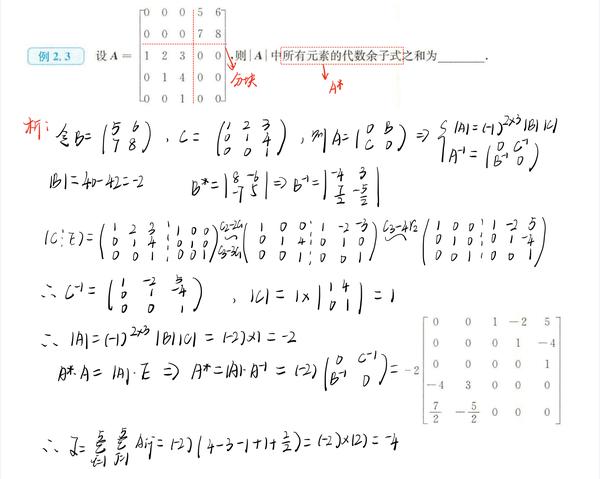 例 2.3 设 A = [0 0 0 5 6; 0 0 0 7 8; 1 2 3 0 0; 0 1 4 0 0; 0 0 1 0 0], 则|A|中所有元素的代数余子式之和为______.
分块 A*
析: 令B=(5 6; 7 8), C=(1 2 3; 0 1 4; 0 0 1), 则A=(0 B; C 0) ⇒ { |A|=(-1)^{2×3}|B||C| A^{-1}=(0 C^{-1}; B^{-1} 0)
|B|=40-42=-2 B*=|8 -6; -7 5| ⇒ B^{-1}=|-4 3; 7/2 -5/2|
(C⋮E)=(1 2 3 ⋮ 1 0 0; 0 1 4 ⋮ 0 1 0; 0 0 1 ⋮ 0 0 1) C2-2C1 C3-3C1 (1 0 0 ⋮ 1 -2 -3; 0 1 4 ⋮ 0 1 0; 0 0 1 ⋮ 0 0 1) C3-4C2 (1 0 0 ⋮ 1 -2 5; 0 1 0 ⋮ 0 1 -4; 0 0 1 ⋮ 0 0 1)
∴ C^{-1}=(1 -2 5; 0 1 -4; 0 0 1), |C|=1×|1 4; 0 1|=1
∴ |A|=(-1)^{2×3}|B||C|=(-2)×1=-2
A*·A=|A|·E ⇒ A*=|A|·A^{-1}=(-2)(0 C^{-1}; B^{-1} 0)=-2[0 0 1 -2 5; 0 0 0 1 -4; 0 0 0 0 1; -4 3 0 0 0; 7/2 -5/2 0 0 0]